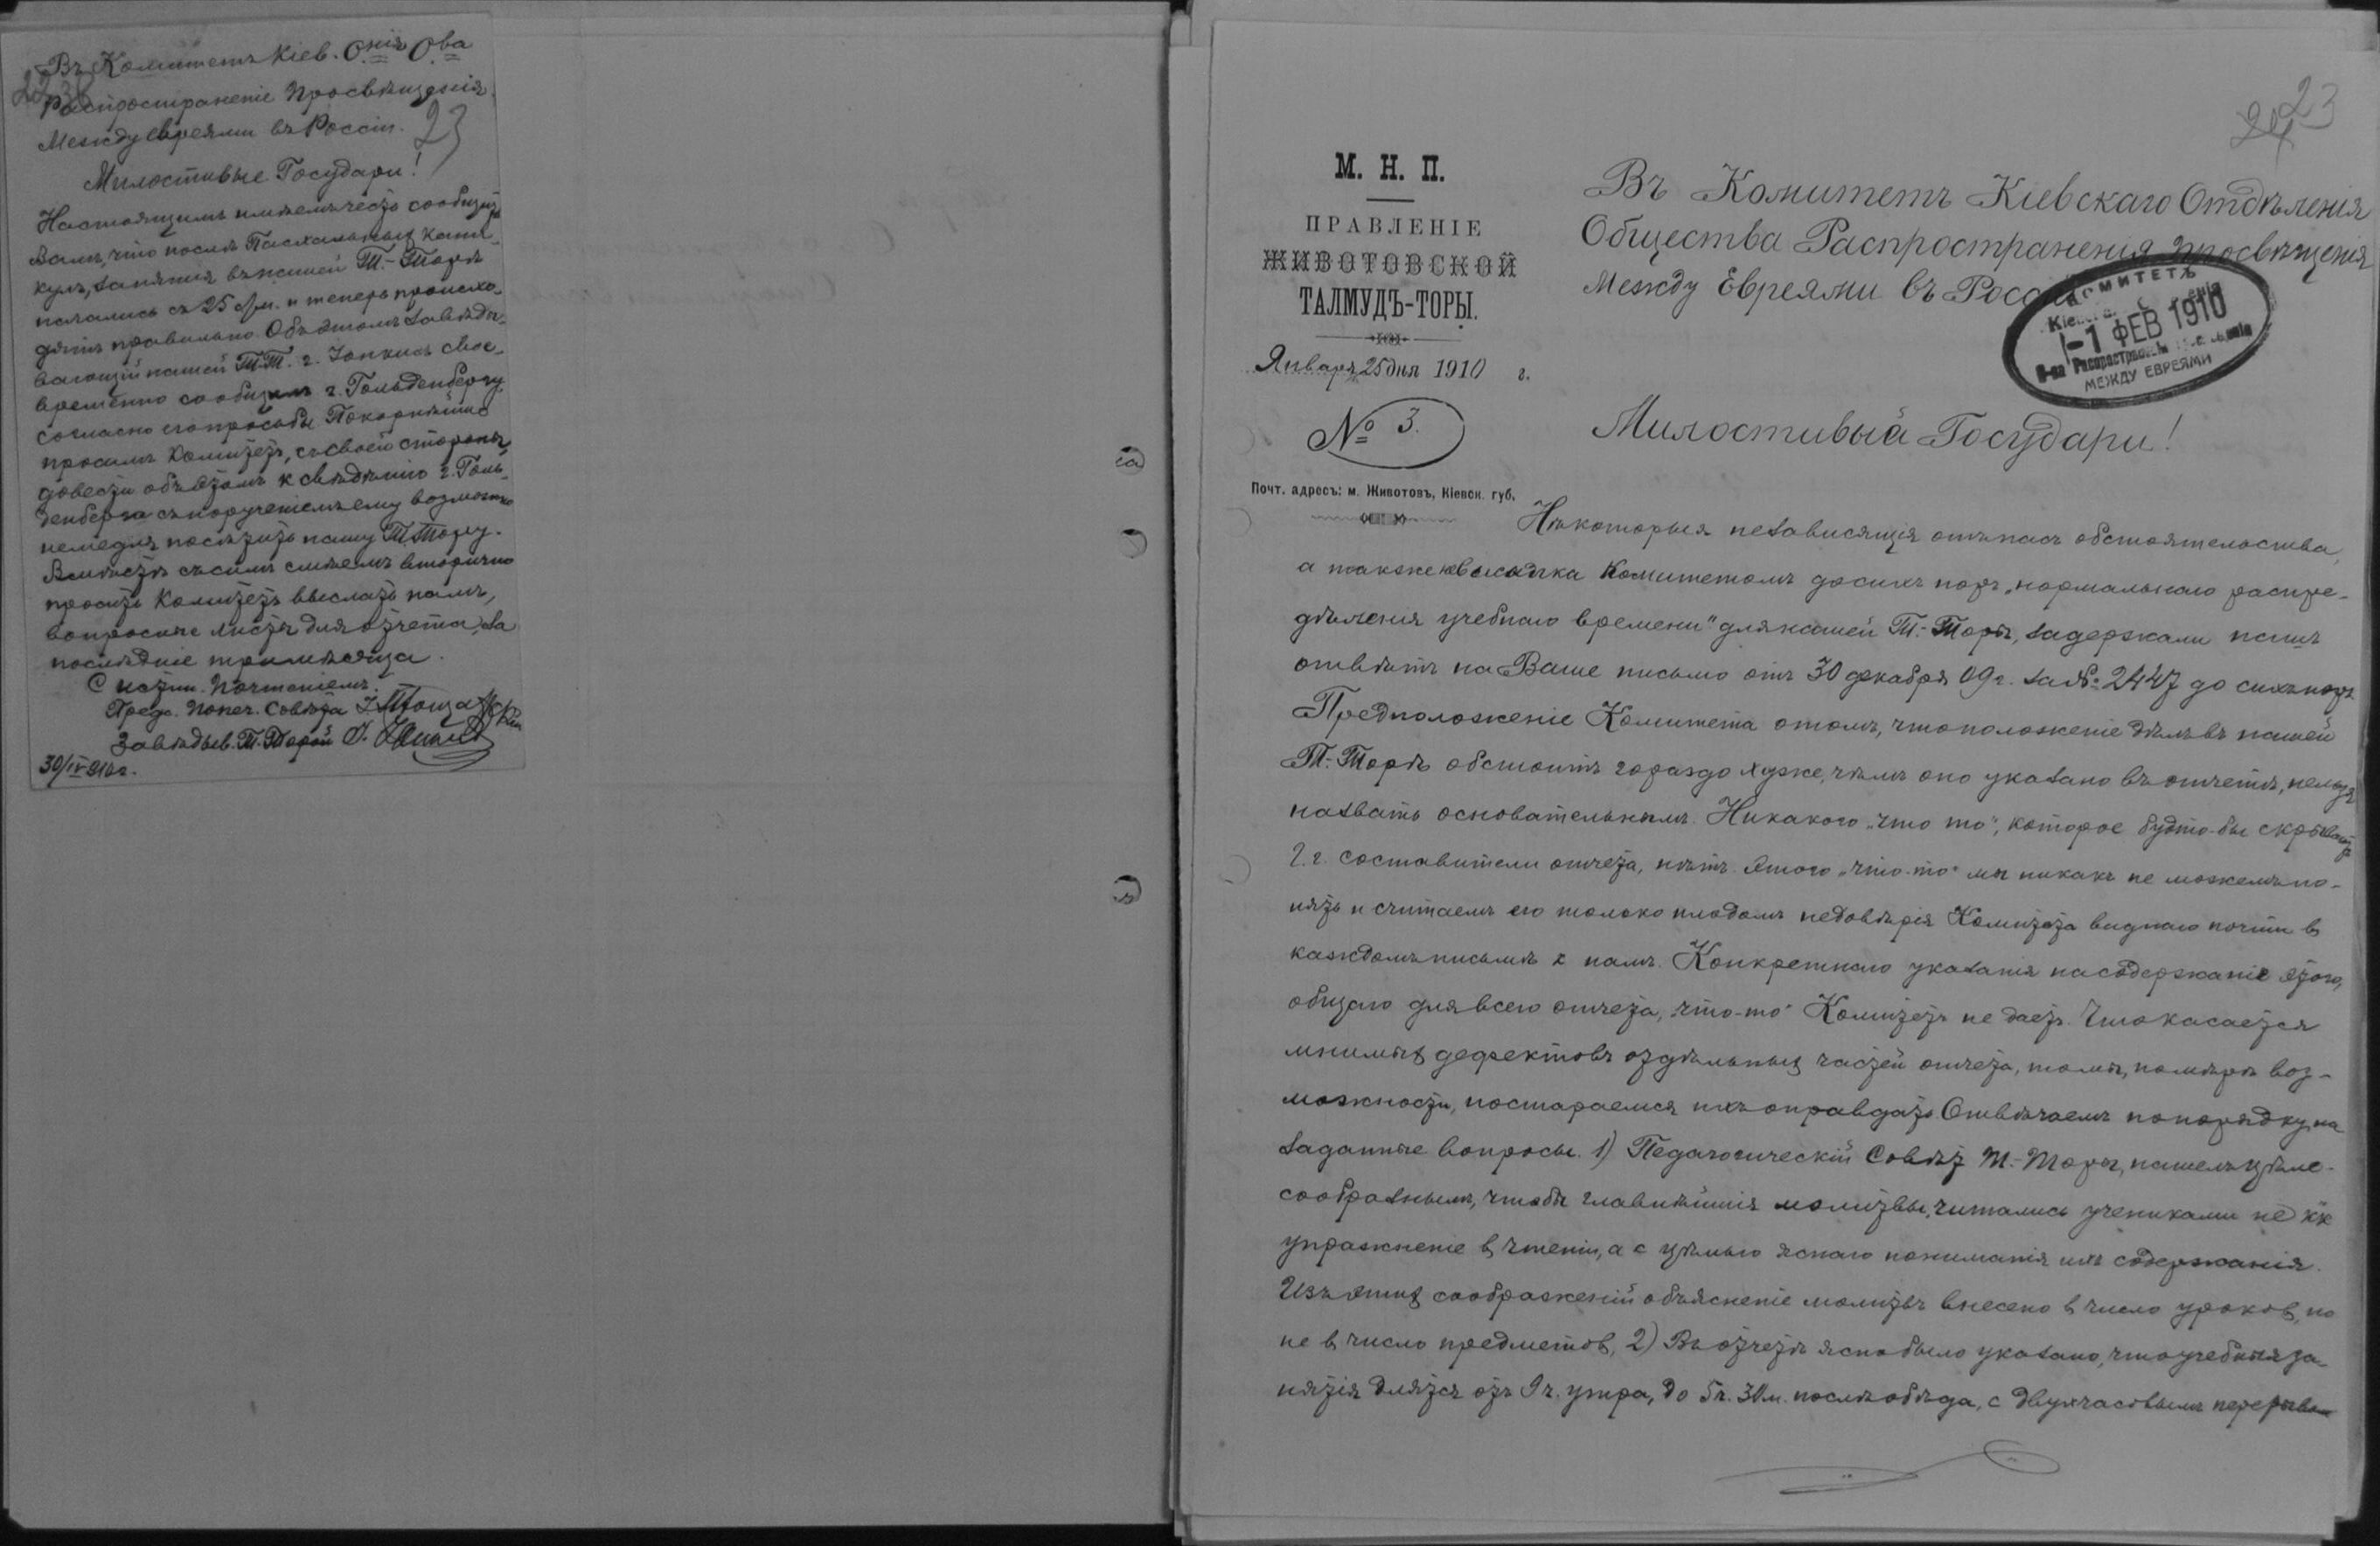 Въ Комитетъ Кіев. О.нія О.ва
Распространеніе Просвѣщенія
Между евреями въ Россіи.
23
Милостивые Государи!
Настоящимъ имѣемъ честь сообщить
Вамъ, что послѣ Пасхальныхъ кани-
кулъ, занятія въ нашей Т.-Торѣ
начались съ 25 с/м. и теперь происхо-
дятъ правильно. Объ этомъ завѣды-
вающій нашей Т.Т. г. свое-
временно сообщилъ г. Гольденбергу
согласно его просьбы. Покорнѣйше
просимъ Комитетъ, съ своей стороны,
довести объ этомъ к свѣдѣнію г. Голь-
денберга съ порученіемъ ему возможно
немедля посѣтить нашу Т.Тору.
Вмѣстѣ съ симъ смѣемъ вторично
просить Комитетъ выслать намъ,
вопросные листы для отчета за
послѣдніе три мѣсяца.
С истин. почтеніемъ.
Предс. Попеч. Совѣта
Завѣдыв. Т.Торой
30/IV 910 г.
23
М. Н. П.
ПРАВЛЕНІЕ
ЖИВОТОВСКОЙ
ТАЛМУДЪ-ТОРЫ.
Января 25 дня 1910 г.
№ 3.
Почт. адресъ: м. Животовъ, Кіевск. губ.
Въ Комитетъ Кіевскаго Отдѣленія
Общества Распространенія Просвѣщенія
Между Евреями въ Россіи
КОМИТЕТЪ
1 ФЕВ 1910
О-ва Распространенія
МЕЖДУ ЕВРЕЯМИ
Милостивый Государи!
Нѣкоторыя независящія отъ насъ обстоятельства,
а также Комитетомъ до сихъ поръ „нормальнаго распре-
дѣленія учебнаго времени" для нашей Т.-Торы, задержали нашъ
отвѣтъ на Ваше письмо отъ 30 декабря 09 г. за №: 2447 до сихъ поръ.
Предположеніе Комитета о томъ, что положеніе дѣлъ въ нашей
Т.-Торѣ обстоитъ гораздо хуже, чѣмъ оно указано въ отчетѣ, нельзя
назвать основательнымъ. Никакого „что то", которое будто-бы скрываютъ
г.г. составители отчета, нѣтъ. Этого „что-то" мы никакъ не можемъ по-
нять и считаемъ его только плодомъ недовѣрія Комитета виднаго почти в
каждомъ письмѣ к намъ. Конкретнаго указанія на содержаніе этого,
общаго для всего отчета, „что-то" Комитетъ не даетъ. Что касается
мнимыхъ дефектовъ отдѣльныхъ частей отчета, то мы, по мѣрѣ воз-
можности, постараемся ихъ оправдать. Отвѣчаемъ по порядку на
заданные вопросы. 1) Педагогическій Совѣт Т.-Торы, нашелъ цѣле-
сообразнымъ, чтобы главнѣйшія молитвы, читались учениками не кк
упражненіе в чтеніи, а с цѣлью яснаго пониманія ихъ содержанія.
Изъ этихъ соображеній объясненіе молитвъ внесено в число уроков, но
не в число предметов, 2) Въ отчетѣ ясно было указано, что учебныя за-
нятія длятся отъ 9 ч. утра, до 5 ч. 30 м. послѣ обѣда, с двухчасовымъ перерывом